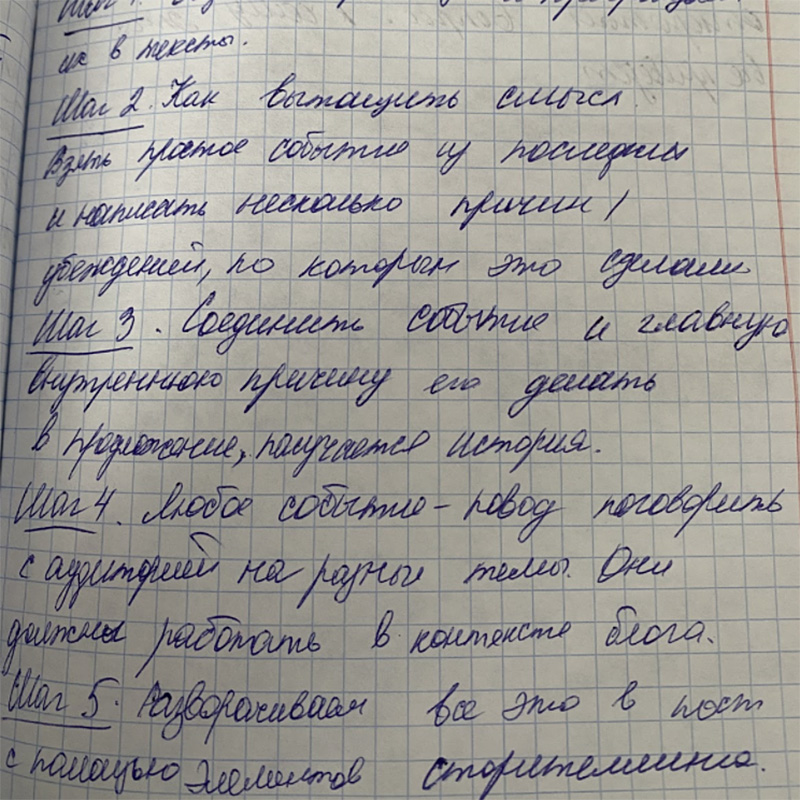 Шаг 1.
их в тексты.
Шаг 2. Как вытащить смысл.
Взять простое событие из последних
и написать несколько причин /
убеждений, по которым это сделали
Шаг 3. Соединить событие и главную
внутреннюю причину его делать
в предложение, получается история.
Шаг 4. Любое событие - повод поговорить
с аудиторией на разные темы. Они
должны работать в контексте блога.
Шаг 5. Разворачиваем все это в пост
с помощью элементов сторителлинга.